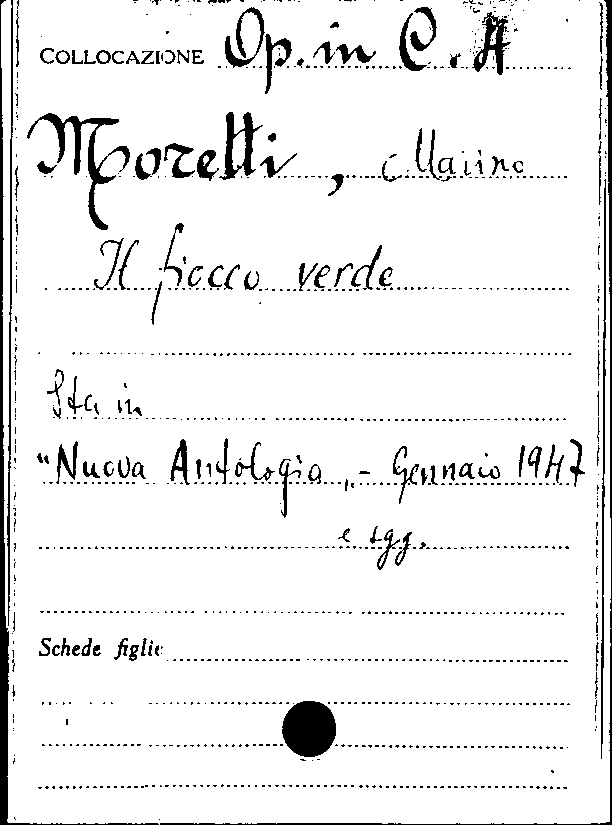 COLLOCAZIONE Op. in C. A
Moretti, Marino
Il fiocco verde
Sta in
"Nuova Antologia„ - Gennaio 1947
e sgg.
Schede figlie